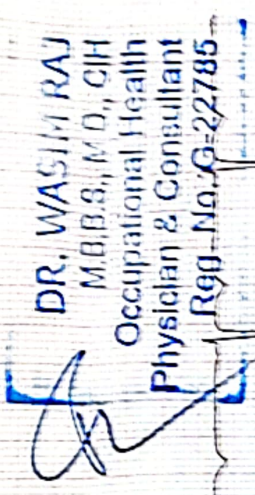 DR. WASIM RAJ
M.B.B.S., M.D., CIH
Occupational Health
Physician & Consultant
Reg. No. G-22785